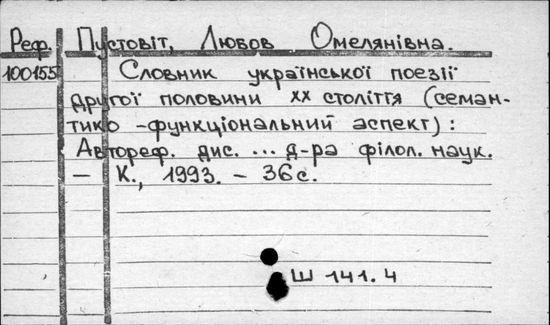 Реф. Пустовіт, Любов Омелянівна.
100155 Словник української поезії
другої половини XX століття (семан-
тико-функціональний аспект):
Автореф. дис. ... д-ра філол. наук.
— К., 1993. - 36с.
Ш 141.4